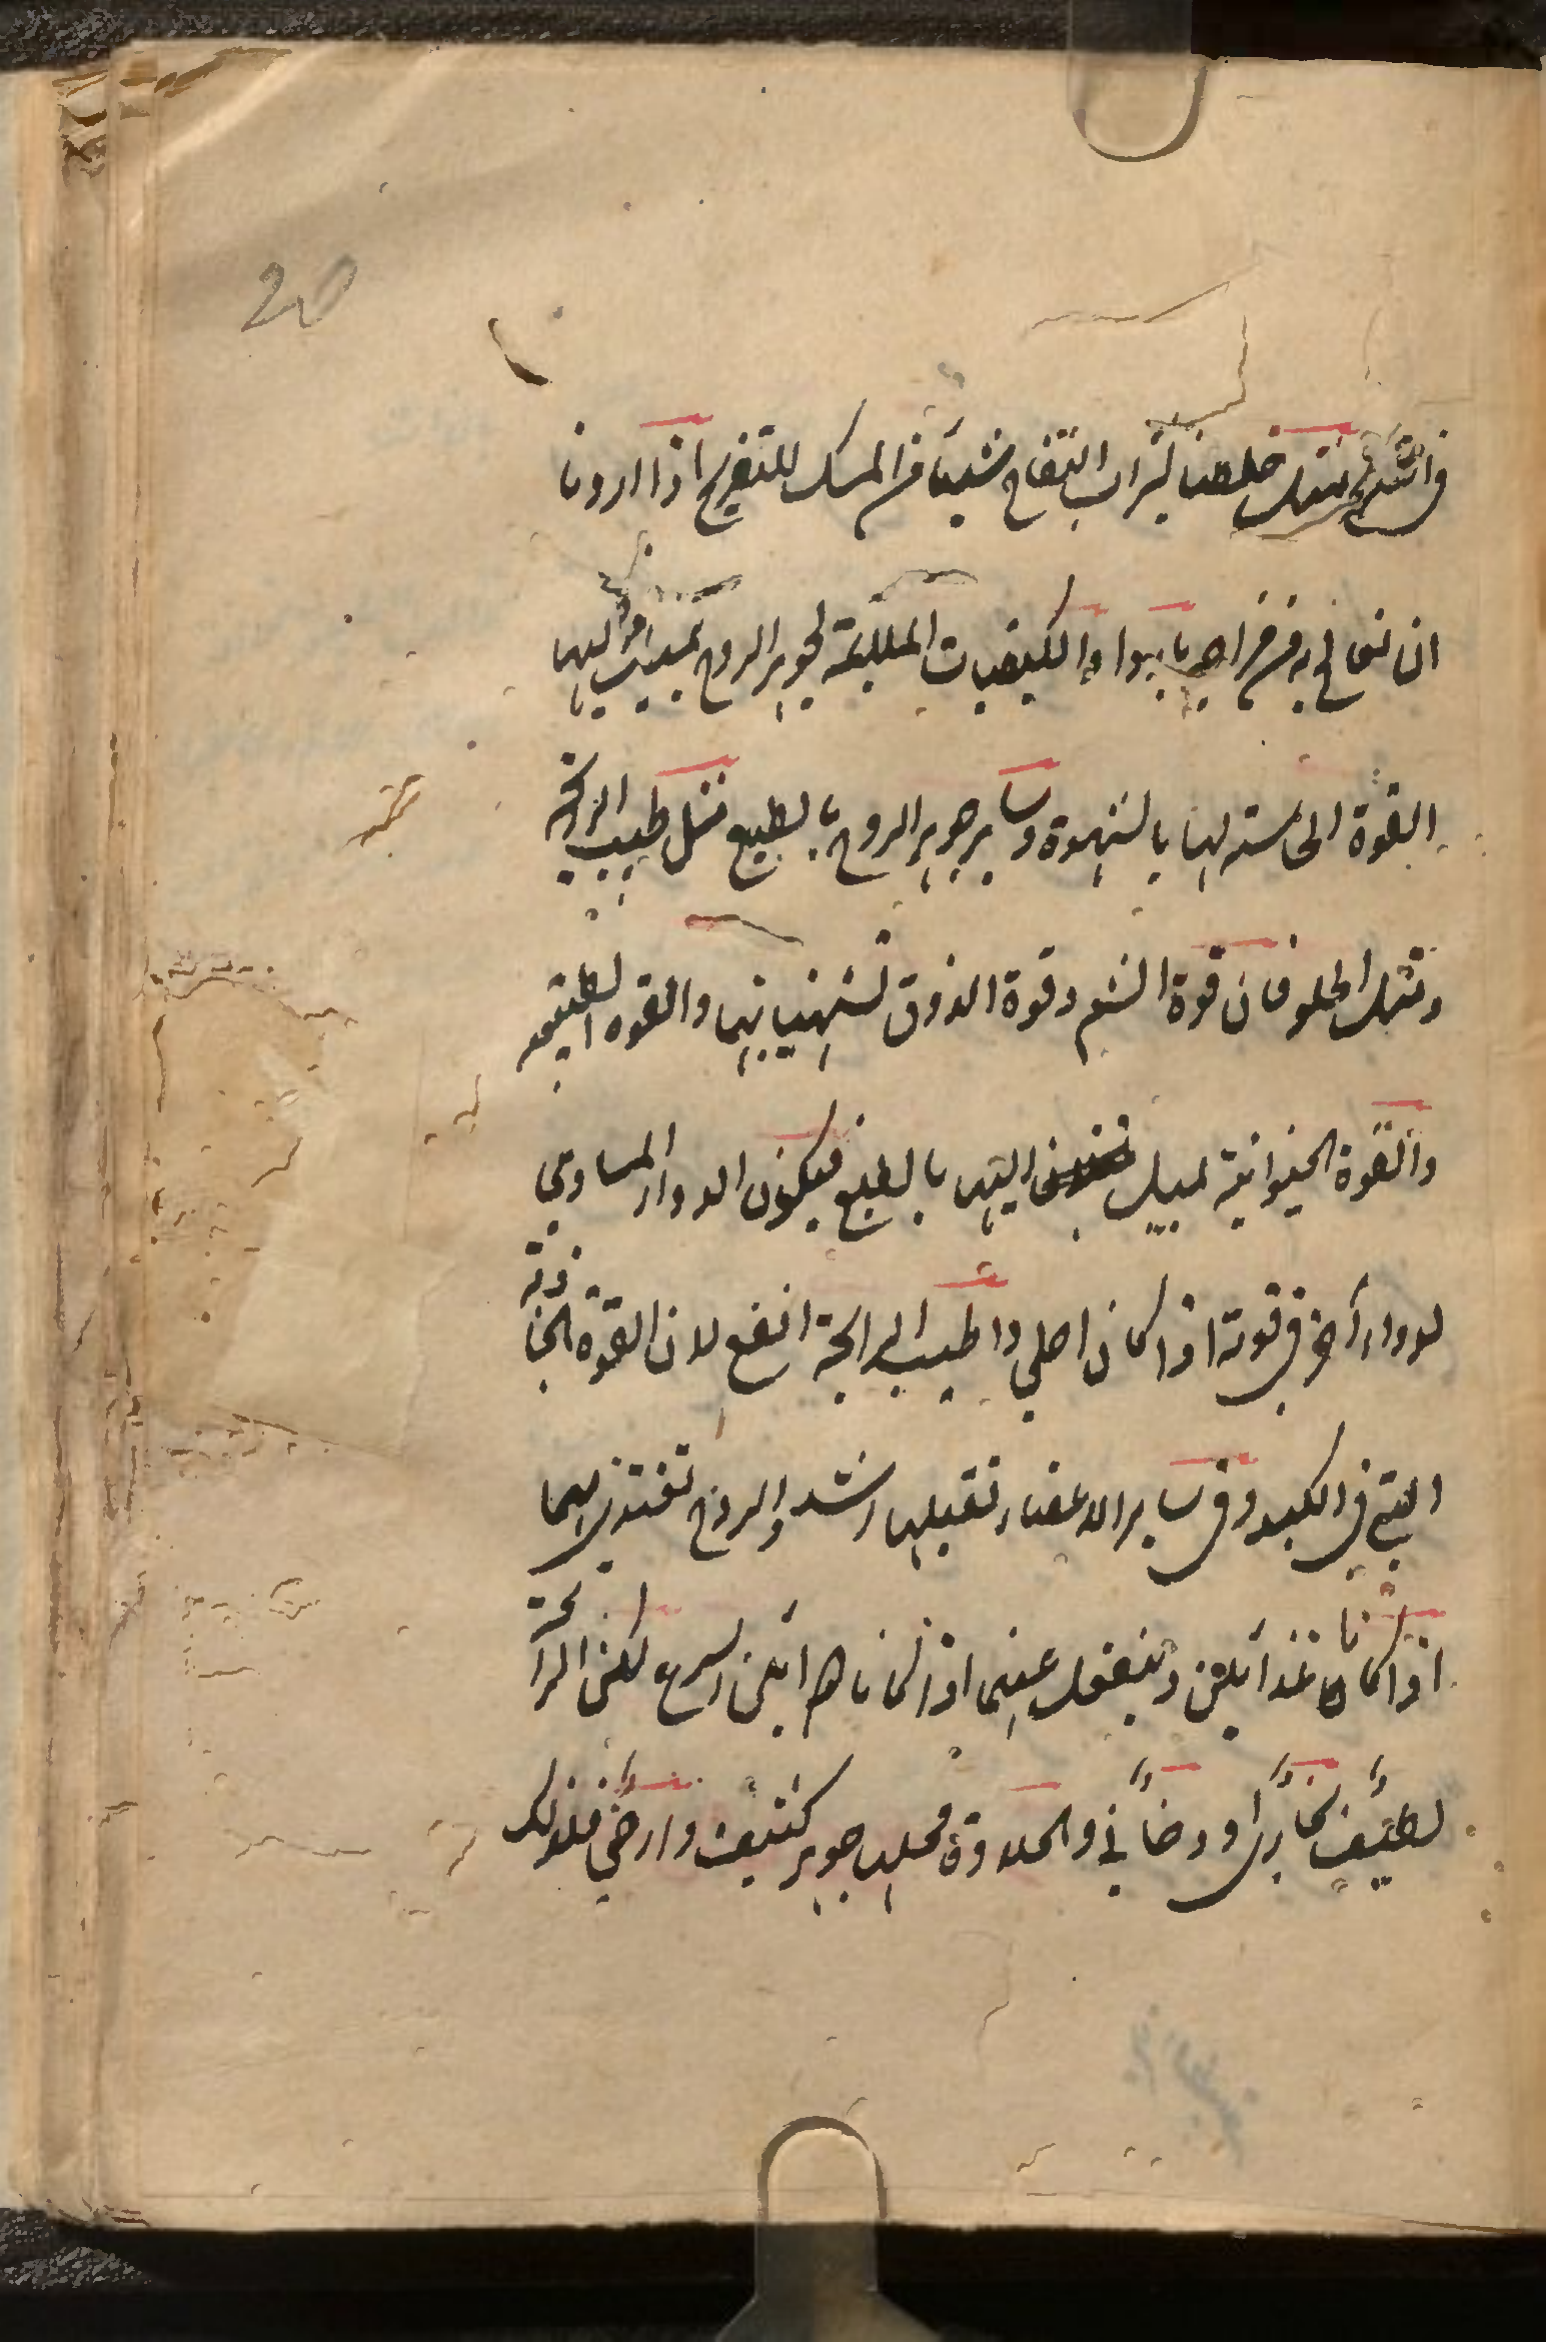 20
خلطنا بشراب التفاح شيئا من المسك للتفريح اذا اردنا
ان نعالج به من مزاجه بارد والكيفيات الملايمة لجوهر الروح تميل اليها
القوة الحاسته لها بالشهوة وساير جوهر الروح بالطبع مثل طيب الرائحة
ومثل الحلو فان قوة الشم وقوة الذوق تشتهيانهما والقوه الطبيعية
والقوة الحيوانية تميل اليها بالطبع فيكون الدواء المساوي
لدواء آخر في قوته اذا كان احلي واطيب الرائحة انفع لان القوة الجاذبة
التي في الكبد وفي ساير الاعضاء تقبلها اشد والروح تغتذي بهما
اذا كانا غذائين وينفعل عنهما اذا كانا دوائين اسرع لكن الرائحة
لطيف بخاري او دخاني والحلاوة محلها جوهر كثيف وارضي فلذلك